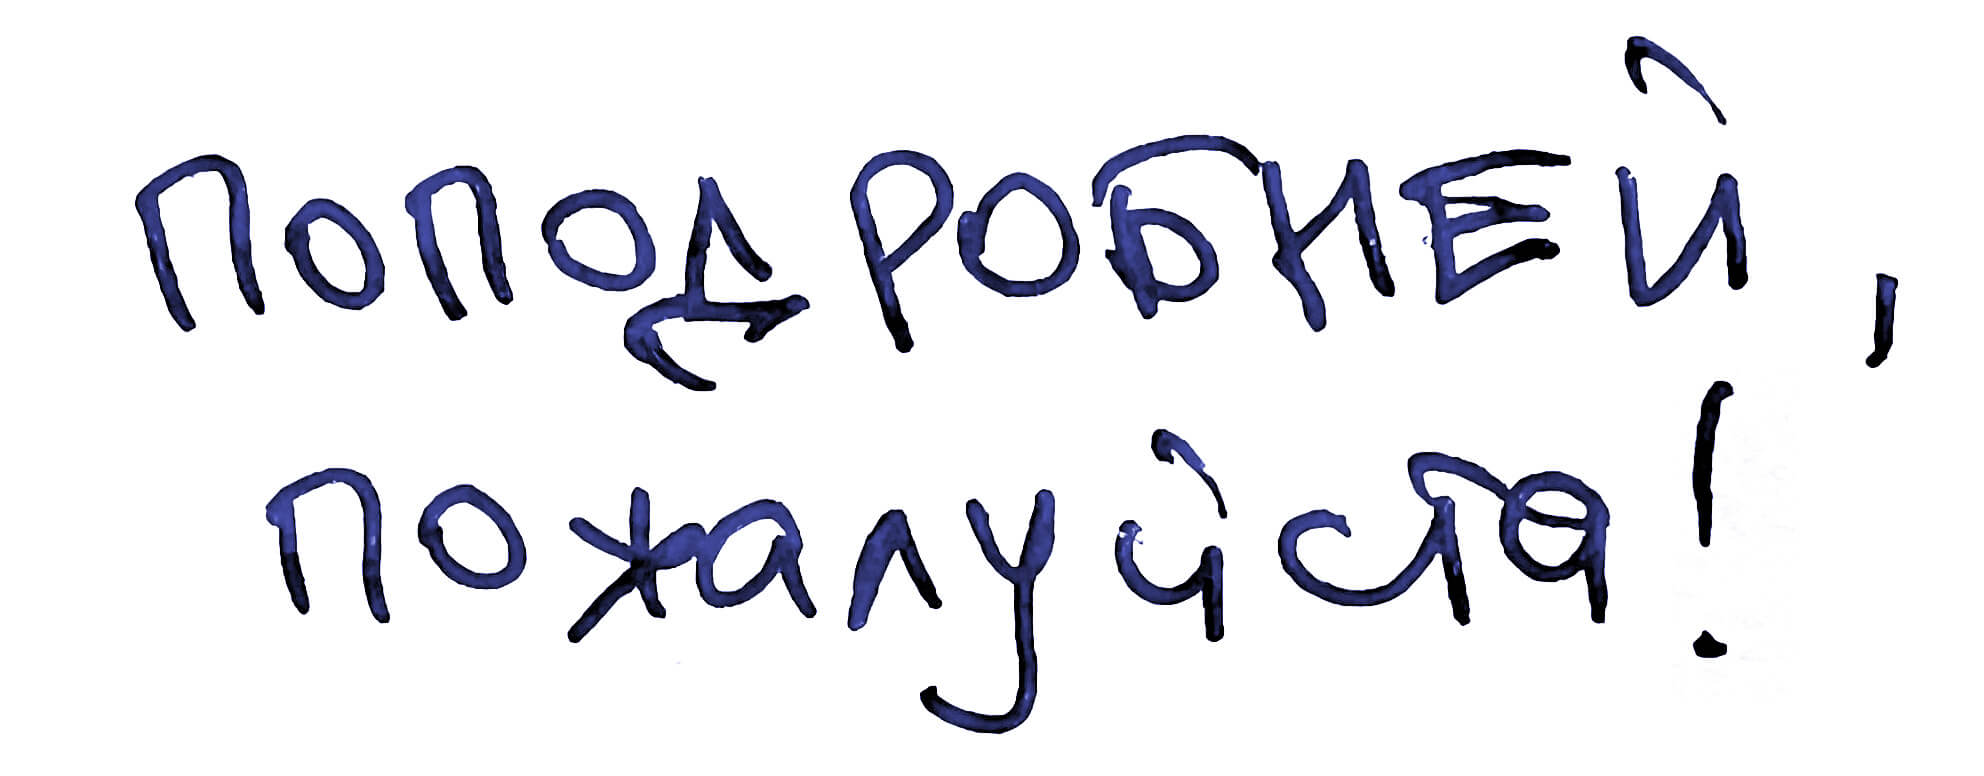 ПОПОДРОБНЕЙ,
пожалуйста!